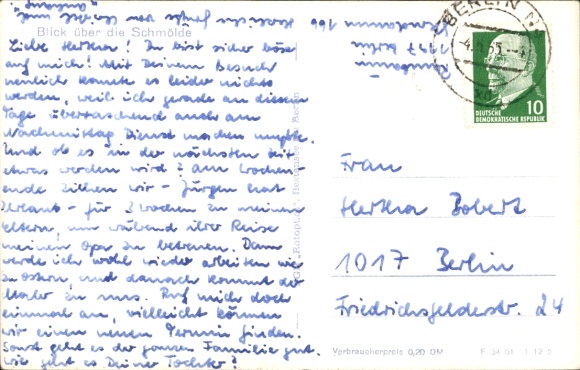 Blick über die Schmölde
Liebe Hertha! Du bist sicher böse
auf mich! Mit Deinem Besuch
neulich konnte es leider nichts
werden, weil ich gerade an diesem
Tage überraschend auch am
Nachmittag Dienst machen mußte.
Und ob es in der nächsten Zeit
etwas werden wird? Am Wochen-
ende ziehen wir - Jürgen hat
Urlaub - für 3 Wochen zu meinen
Eltern, um während ihrer Reise
meinen Opa zu betreuen. Dann
werde ich wohl wieder arbeiten wie
zu Ostern, und danach kommt der
Maler zu uns. Ruf mich doch
einmal an, vielleicht können
wir einen neuen Termin finden.
Sonst geht es der ganzen Familie gut.
Wie geht es Deiner Tochter?
Herzliche Grüße von
1197 Berlin
166
BERLIN
DEUTSCHE
DEMOKRATISCHE REPUBLIK
10
Frau
Hertha Bobert
1017 Berlin
Friedrichsfelderstr. 24
Verbraucherpreis 0,20 DM